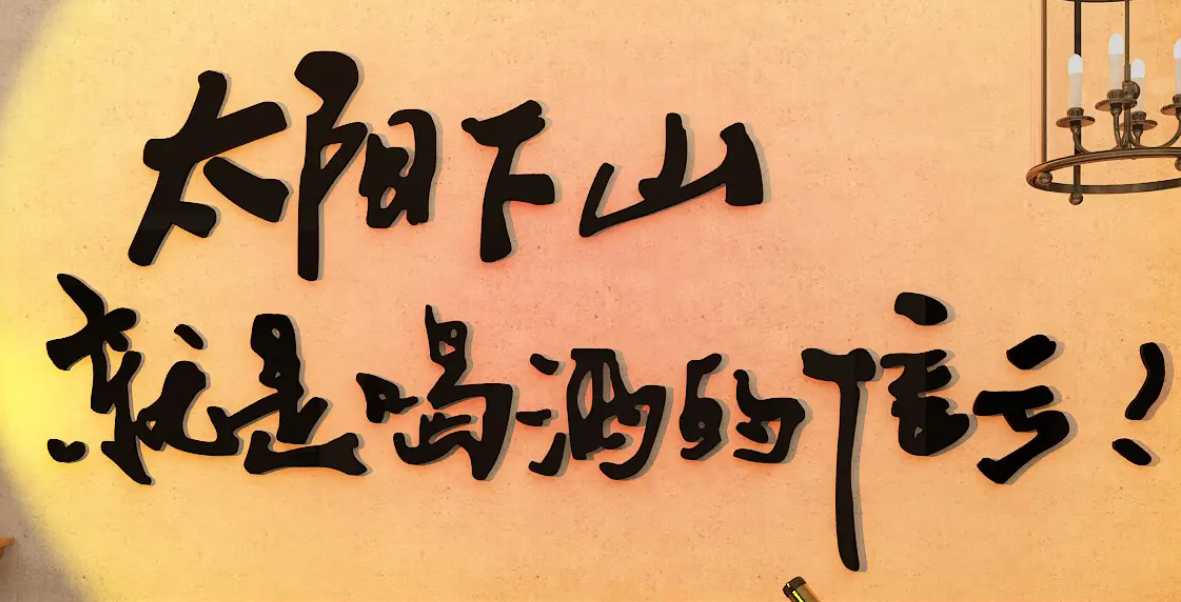 太阳下山
就是喝酒的信号!